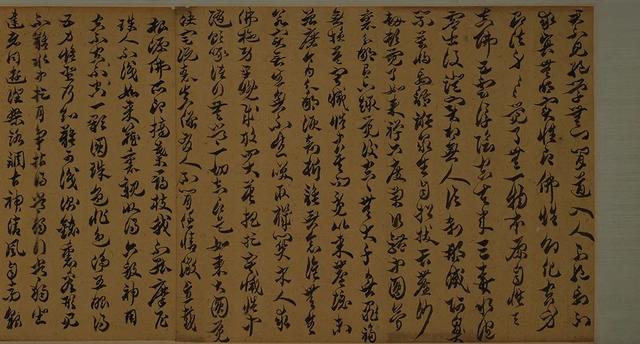 君不見絕學無為閑道人不除妄想不
求真無明實性即佛性幻化空身
即法身法身覺了無一物本源自性天
真佛五陰浮雲空去來三毒水泡
虛出沒證實相無人法剎那滅却阿鼻業
若將妄語誑眾生自招拔舌塵沙
劫頓覺了如來禪六度萬行體中圓夢
裏明明有六趣覺後空空無大千無罪福
無損益寂滅性中莫問覓比來塵鏡未
曾磨今日分明須剖析誰無念誰無生
若實無生無不生喚取機關木人問求
佛施功早晚成放四大莫把捉寂滅性中
隨飲啄諸行無常一切空即是如來大圓覺
決定說表真僧有人不肯任情徵直截
根源佛所印摘葉尋枝我不能摩尼
珠人不識如來藏裏親收得六般神用
空不空一顆圓珠色非色淨五眼得
五力唯證乃知難可測鏡裏看形見
不難水中捉月爭拈得常獨行常獨步
達者同遊涅槃路調古神清風自高貌